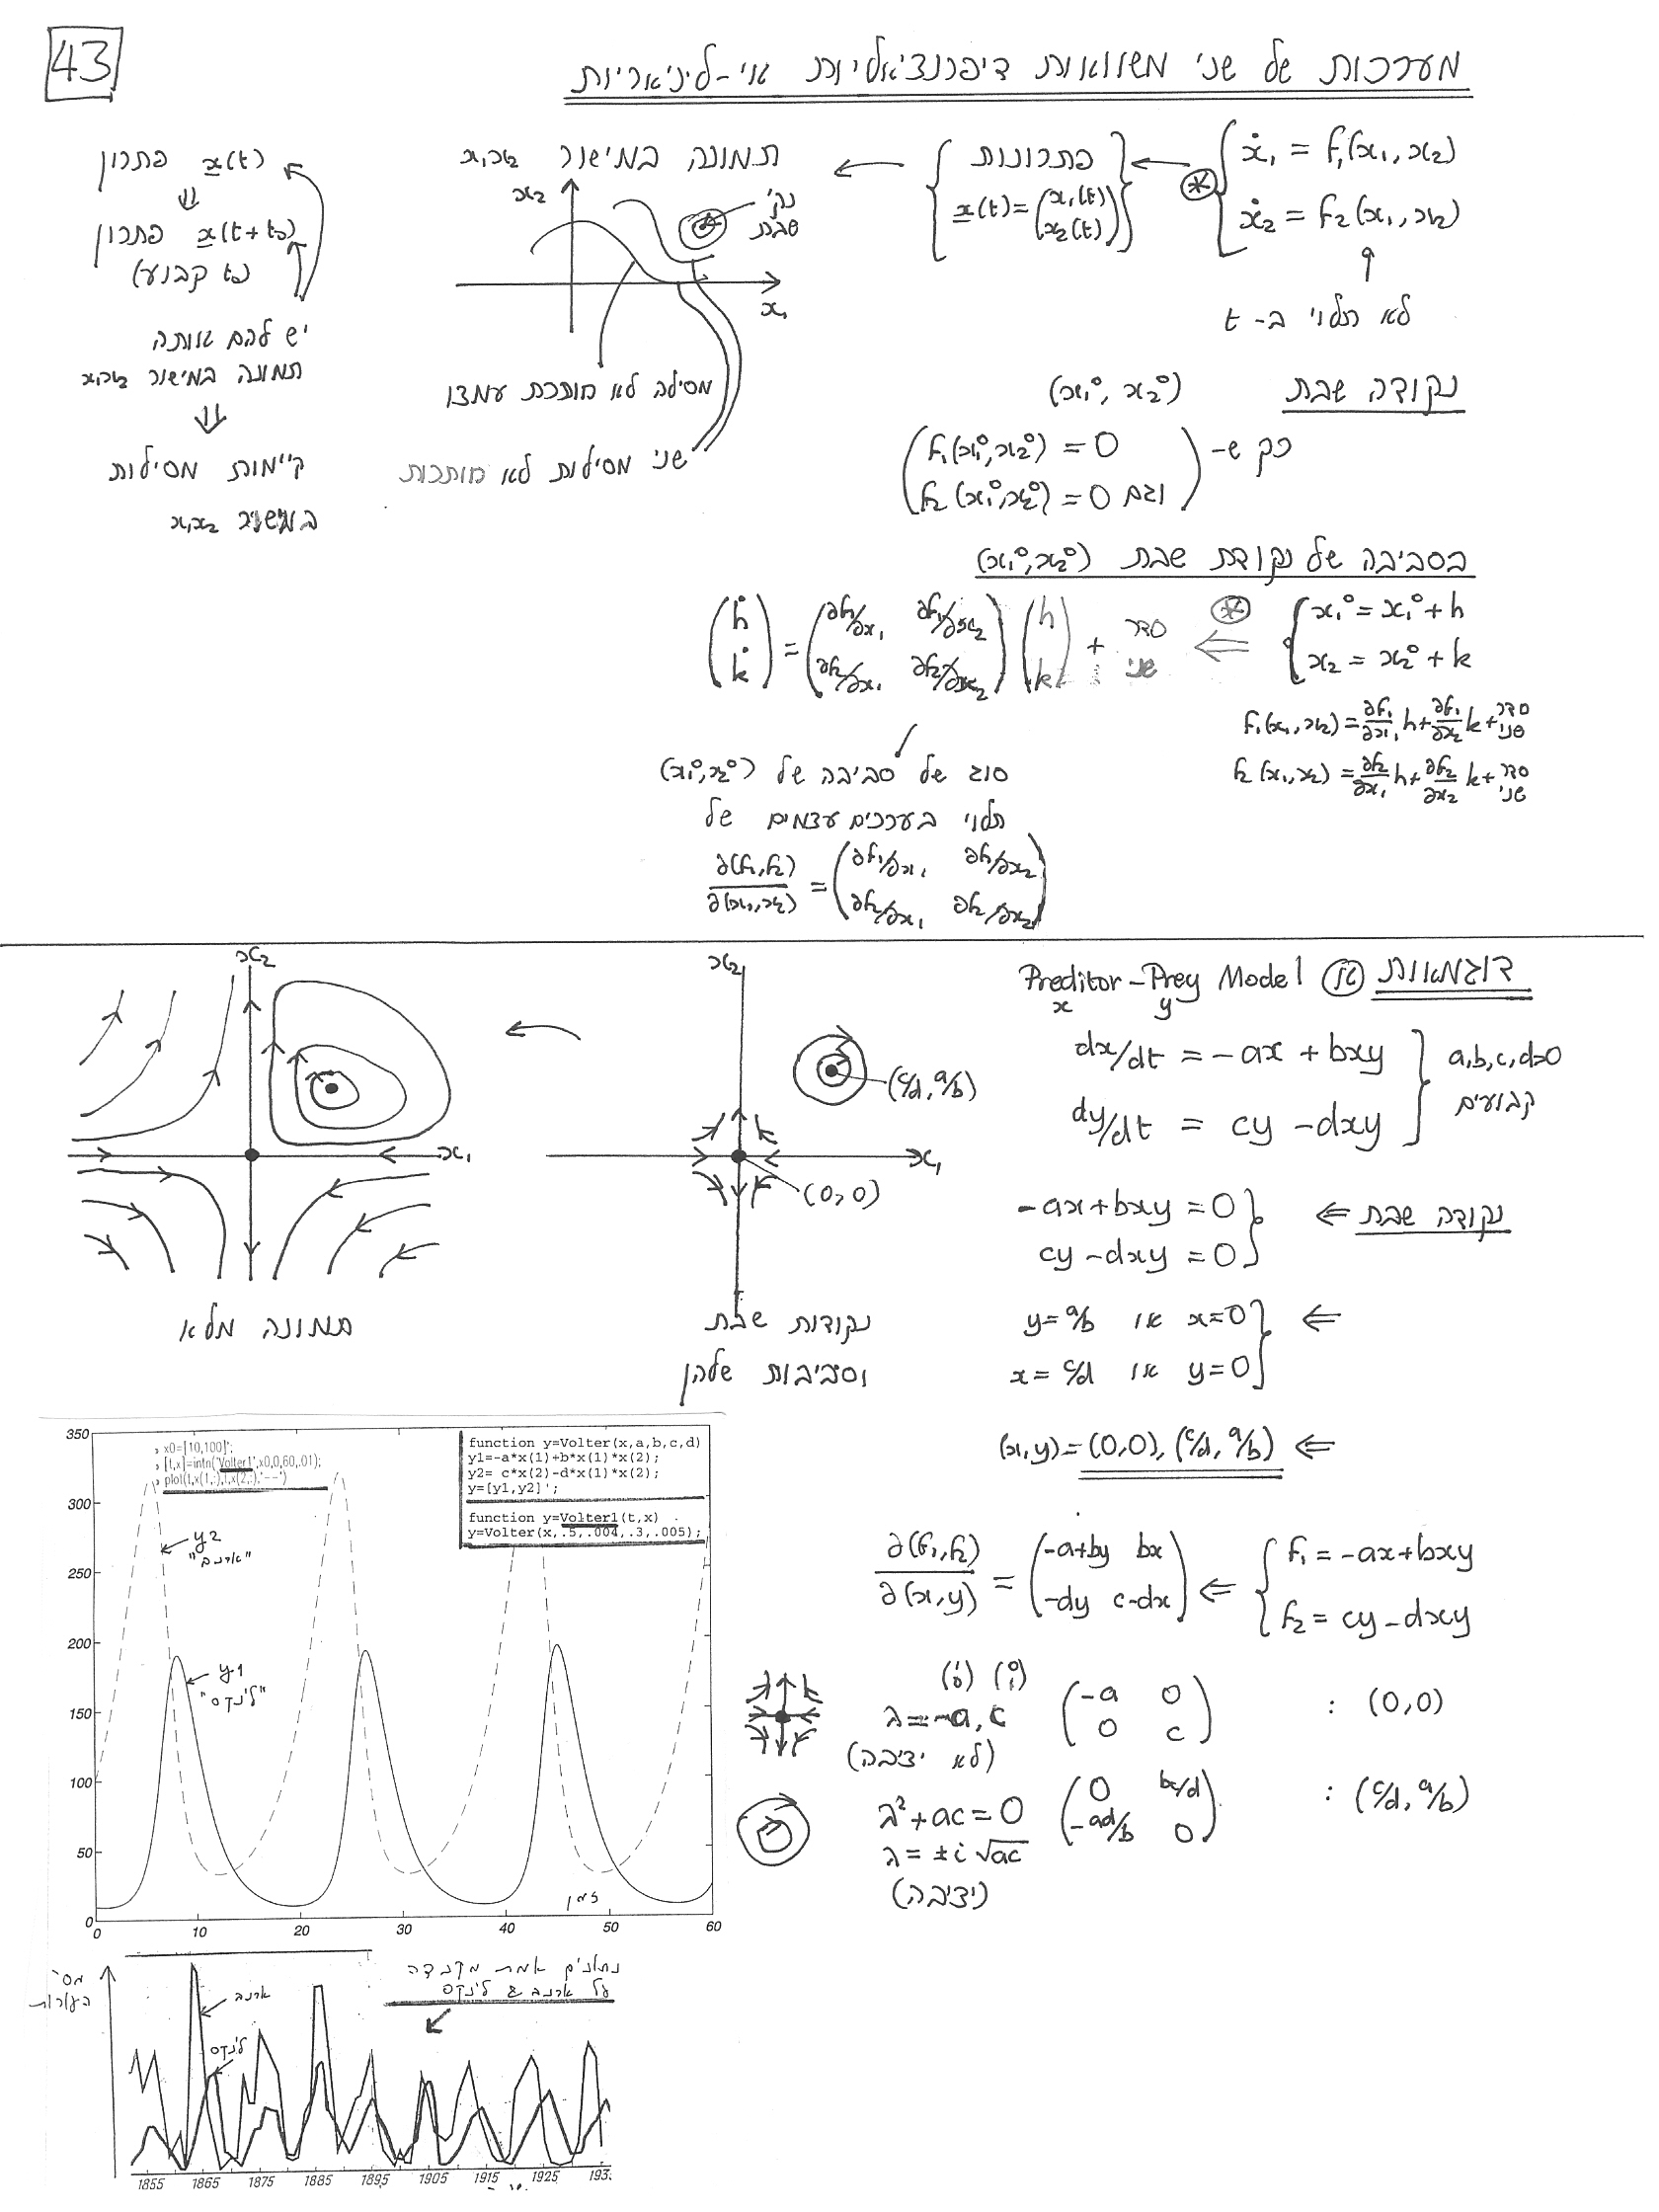 43
מערכות של שני משוואות דיפרנציאליות אי-לינאריות
ẋ₁ = f₁(x₁, x₂)
ẋ₂ = f₂(x₁, x₂)
לא תלוי ב- t
⊛
פתרונות
x(t) = (x₁(t) x₂(t))
תמונה במישור x₁x₂
x₂
x₁
נק' שבת
מסילה לא חותכת עצמו
שני מסילות לא חותכות
x(t) פתרון
⇓
x(t+t₀) פתרון
(t₀ קבוע)
יש להם אותה
תמונה במישור x₁x₂
⇓
קיימות מסילות
במישור x₁x₂
נקודה שבת (x₁⁰, x₂⁰)
כך ש- f₁(x₁⁰, x₂⁰) = 0
וגם f₂(x₁⁰, x₂⁰) = 0
בסביבה של נקודת שבת (x₁⁰, x₂⁰)
x₁⁰ = x₁⁰ + h
x₂ = x₂⁰ + k
⊛ ⇐
(ḣ k̇) = (∂f₁/∂x₁ ∂f₁/∂x₂ ∂f₂/∂x₁ ∂f₂/∂x₂) (h k) + סדר שני
f₁(x₁, x₂) = ∂f₁/∂x₁ h + ∂f₁/∂x₂ k + סדר שני
f₂(x₁, x₂) = ∂f₂/∂x₁ h + ∂f₂/∂x₂ k + סדר שני
סוג של סביבה של (x₁⁰, x₂⁰)
תלוי בערכים עצמים של
∂(f₁,f₂)/∂(x₁,x₂) = (∂f₁/∂x₁ ∂f₁/∂x₂ ∂f₂/∂x₁ ∂f₂/∂x₂)
דוגמאות (א) Preditor-Prey Model
x y
dx/dt = -ax + bxy
dy/dt = cy - dxy
a,b,c,d>0
קבועים
נקודה שבת ⇐
-ax + bxy = 0
cy - dxy = 0
⇐ x=0 או y= a/b
y=0 או x= c/d
⇐ (x,y) = (0,0), (c/d, a/b)
x₂
(c/d, a/b)
x₁
(0,0)
נקודות שבת
וסביבות שלהן
x₂
x₁
תמונה מלא
f₁ = -ax+bxy
f₂ = cy-dxy
⇐ ∂(f₁,f₂)/∂(x,y) = (-a+by bx -dy c-dx)
(0,0) : (-a 0 0 c)
(1 0) (0 1)
λ = -a, c
(לא יציבה)
(c/d, a/b) : (0 bc/d -ad/b 0)
λ²+ac = 0
λ = ±i√ac
(יציבה)
350
300
250
200
150
100
50
0
0 10 20 30 40 50 60
x0=[10,100]';
[t,x]=intn('Volter1',x0,0,60,.01);
plot(t,x(1,:),t,x(2,:),'--')
function y=Volter(x,a,b,c,d)
y1=-a*x(1)+b*x(1)*x(2);
y2= c*x(2)-d*x(1)*x(2);
y=[y1,y2]';
function y=Volter1(t,x)
y=Volter(x,.5,.004,.3,.005);
y2
"ארנב"
y1
"לינקס"
זמן
נתונים אמת מקנדה
על ארנב & לינקס
מס'
ארנב
לינקס
1855 1865 1875 1885 1895 1905 1915 1925 193